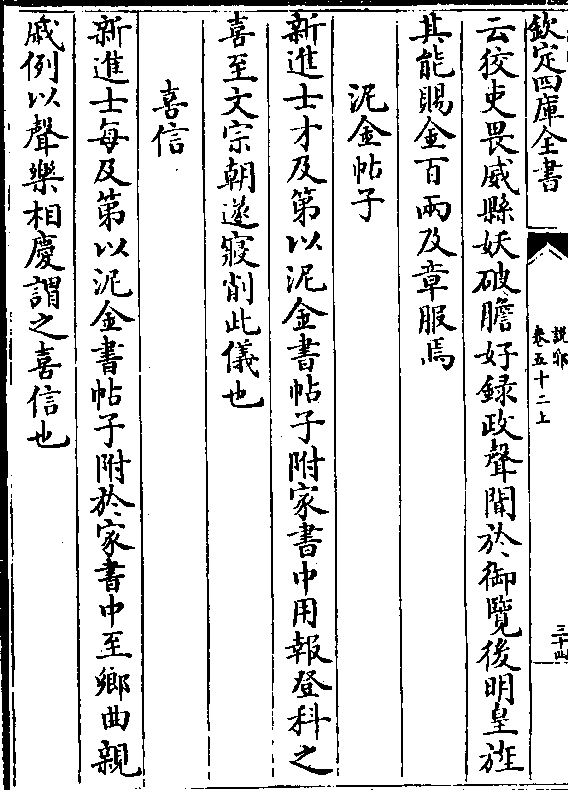 欽定四庫全書
說郛
卷五十二上
三十四
云狡吏畏威縣妖破膽好録政聲聞於御覽後明皇旌
其能賜金百兩及章服焉
泥金帖子
新進士才及第以泥金書帖子附家書中用報登科之
喜至文宗朝遂寢削此儀也
喜信
新進士每及第以泥金書帖子附於家書中至鄉曲親
戚例以聲樂相慶謂之喜信也